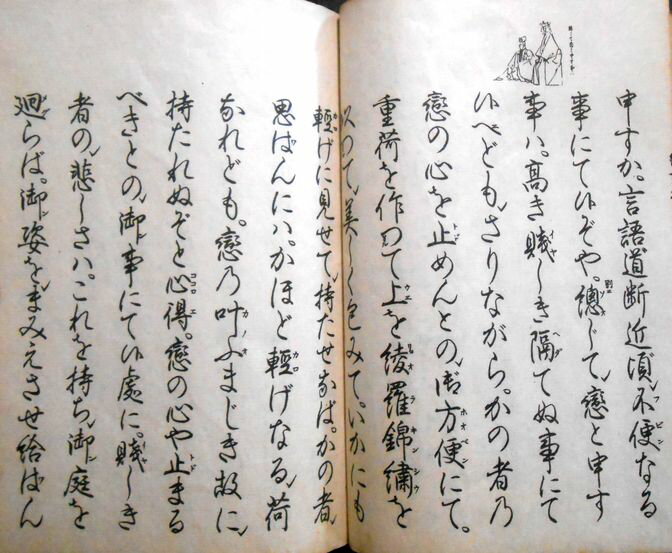 申すか。言語道断近頃不便なる
事にて候ぞや。總じて戀と申す
事ハ。高き賤しき隔てぬ事にて
候へども。さりながら。かの者乃
戀の心を止めんとの。御方便にて。
重荷を作つて上を綾羅錦繍を
以つて。美しく包みて。いかにも
輕げに見せて。持たせなば。かの者。
思はんにハ。かほど輕げなる。荷
なれども。戀乃叶ふまじき故に。
持たれぬぞと心得。戀の心や止まる
べきとの。御事にて候處に。賤しき
者の。悲しさハ。これを持ち。御庭を
廻らば。御姿を。まみえさせ給はん